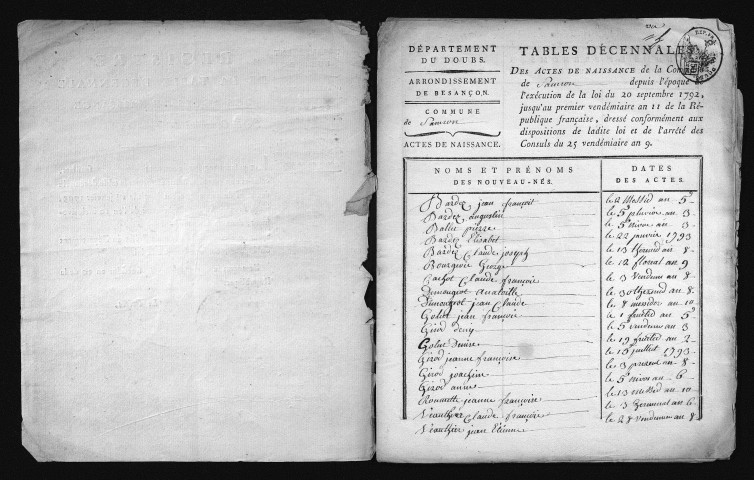 DÉPARTEMENT
DU DOUBS.
ARRONDISSEMENT
DE BESANÇON.
COMMUNE
de Samson
ACTES DE NAISSANCE.
TABLES DÉCENNALES
DES ACTES DE NAISSANCE de la Commune
de Samson depuis l'époque de
l'exécution de la loi du 20 septembre 1792,
jusqu'au premier vendémiaire an 11 de la Ré-
publique française, dressé conformément aux
dispositions de ladite loi et de l'arrêté des
Consuls du 25 vendémiaire an 9.
NOMS ET PRÉNOMS
DES NOUVEAU-NÉS.
DATES
DES ACTES.
Bardez jean françois le 2 Messid an 5
Bardez augustin le 5 pluviose an 3
Bollet pierre le 5 nivos an 3
Bardez Elisabet le 22 janvier 1793
Bardez Claude joseph le 13 thermid an 8
Bourquin George le 12 floreal an 9
Cachot Claude françois le 3 vendem an 8
Demougeot anatoille le 30 thermid an 8
Demougeot jean Claude le 8 messidor an 10
Golut jean françois le 1 fructid an 5
Girod Deny le 5 vendem an 3
Golut Denise le 19 fructid an 2
Girod jeanne françoise le 15 juillet 1793
Girod joachim le 3 an 8
Girod anne le 5 nivos an 6
jeanne françoise le 13 messid an 10
Vauthier Claude françois le 3 Germinal an 6
Vauthier jean Etienne le 28 vendemm an 8